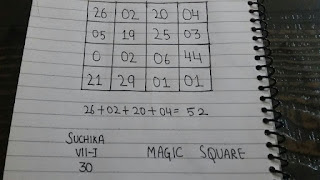 26 02 20 04
05 19 25 03
0 02 06 44
21 29 01 01
26+02+20+04= 52
SUCHIKA
VII-I MAGIC SQUARE
30